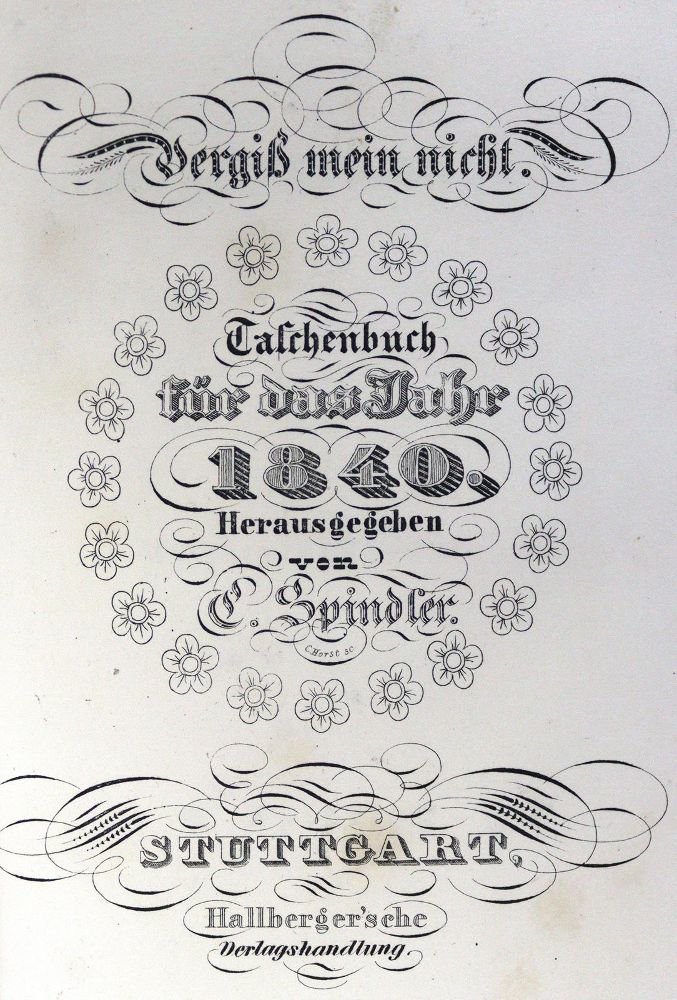 Vergiß mein nicht.
Taschenbuch
für das Jahr
1840.
Herausgegeben
von
C. Spindler.
C. Horst sc
STUTTGART,
Hallberger'sche
Verlagshandlung.